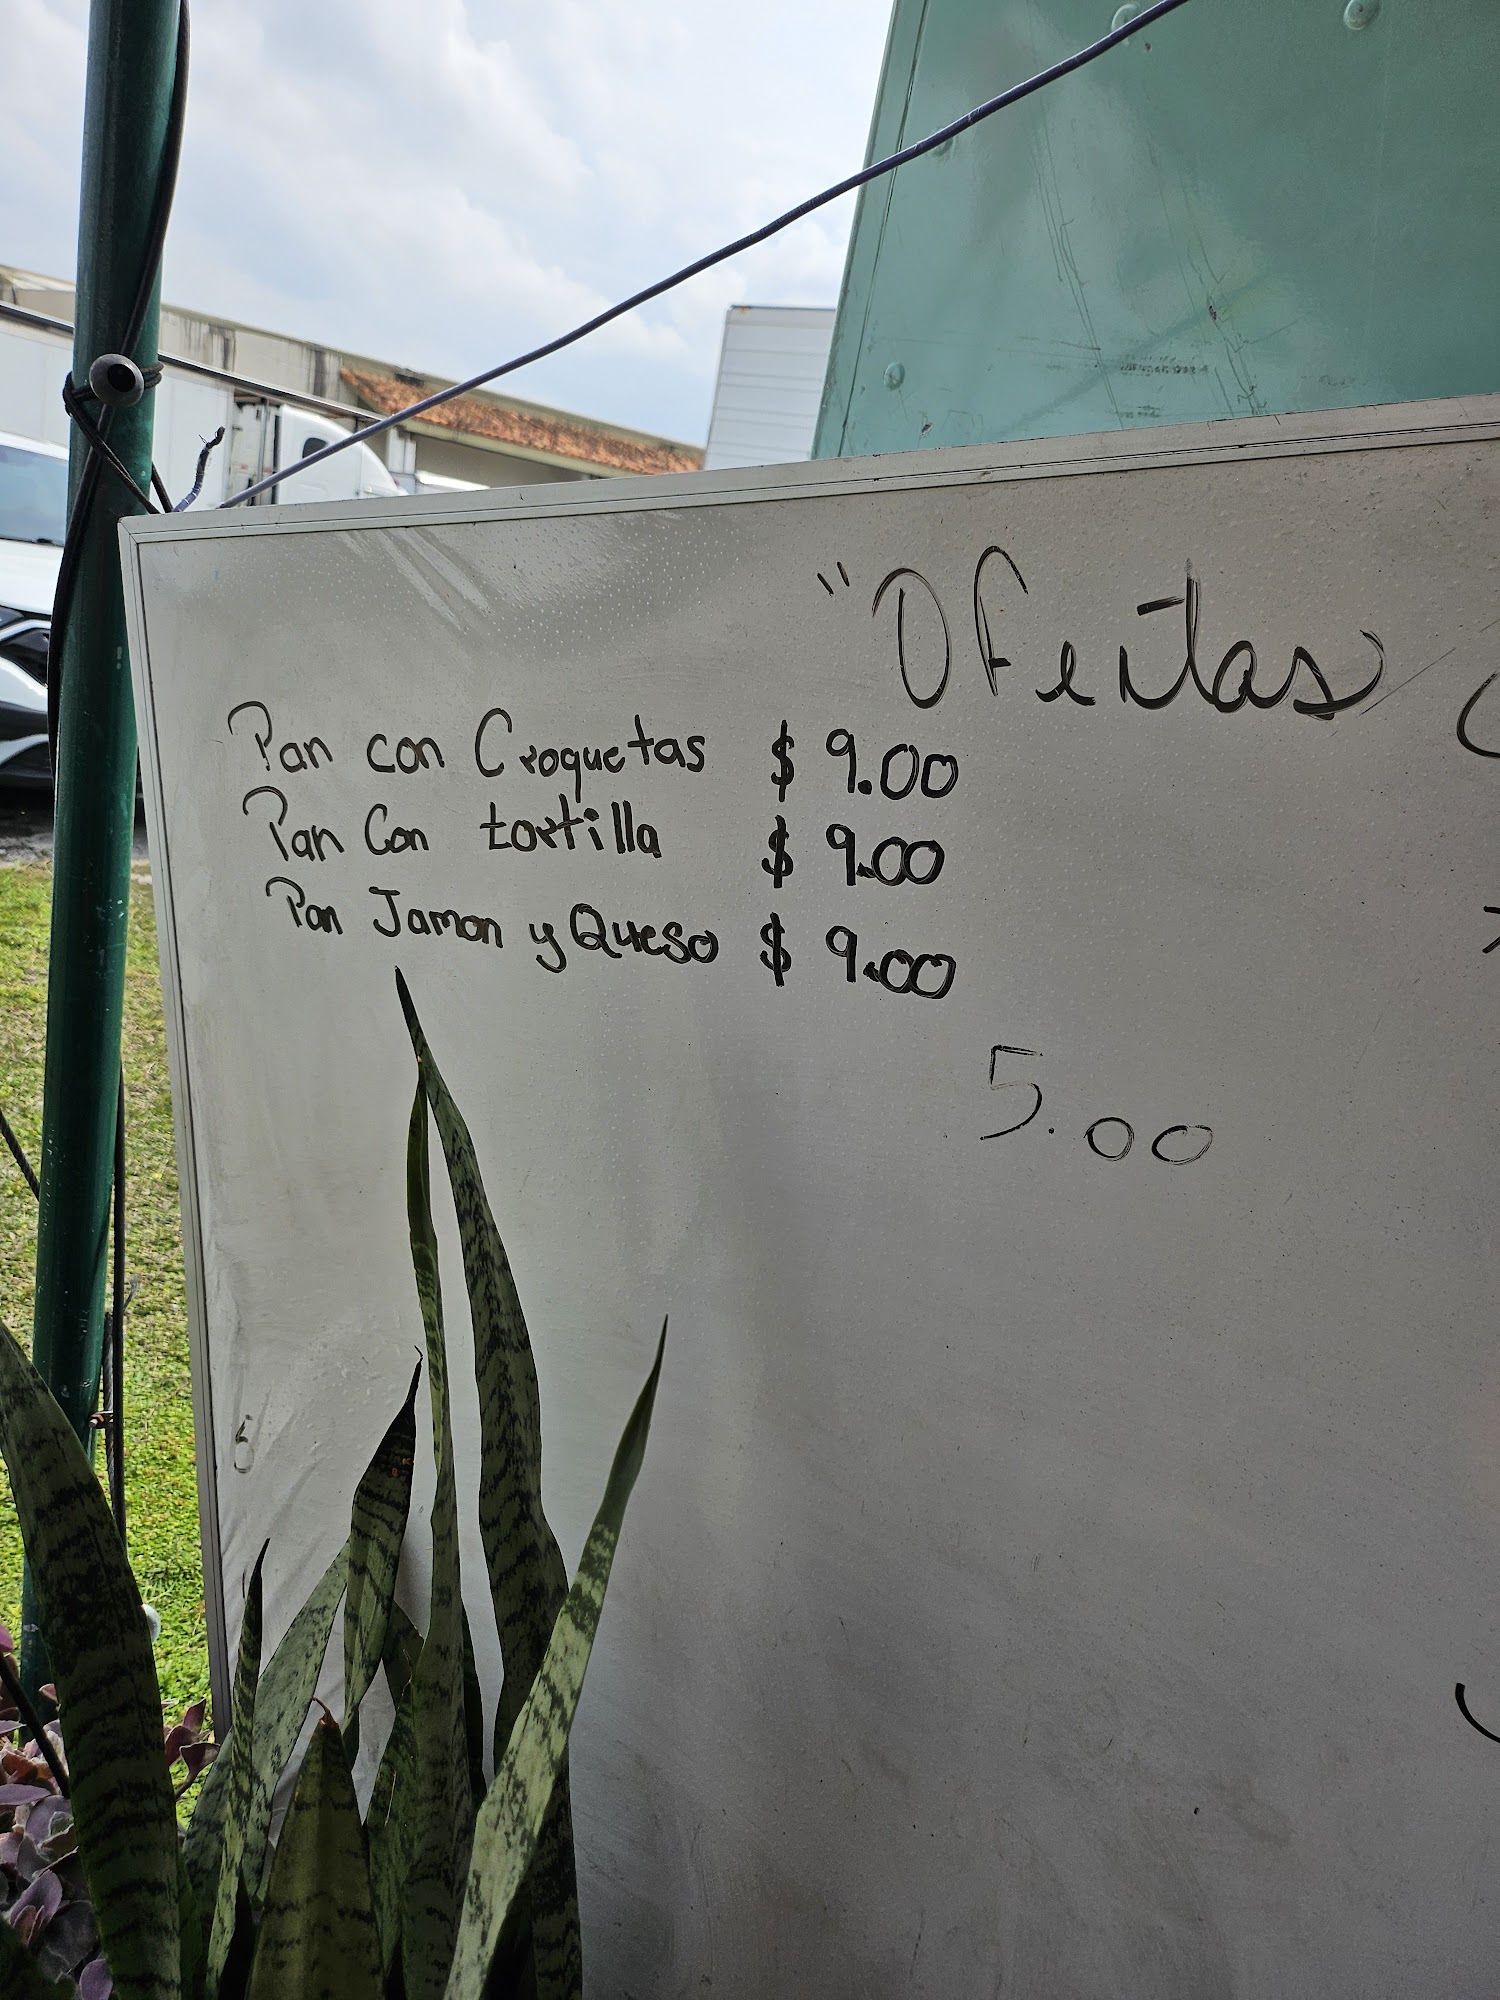 "Ofertas
Pan con Croquetas $ 9.00
Pan Con tortilla $ 9.00
Pan Jamon y Queso $ 9.00
5.00